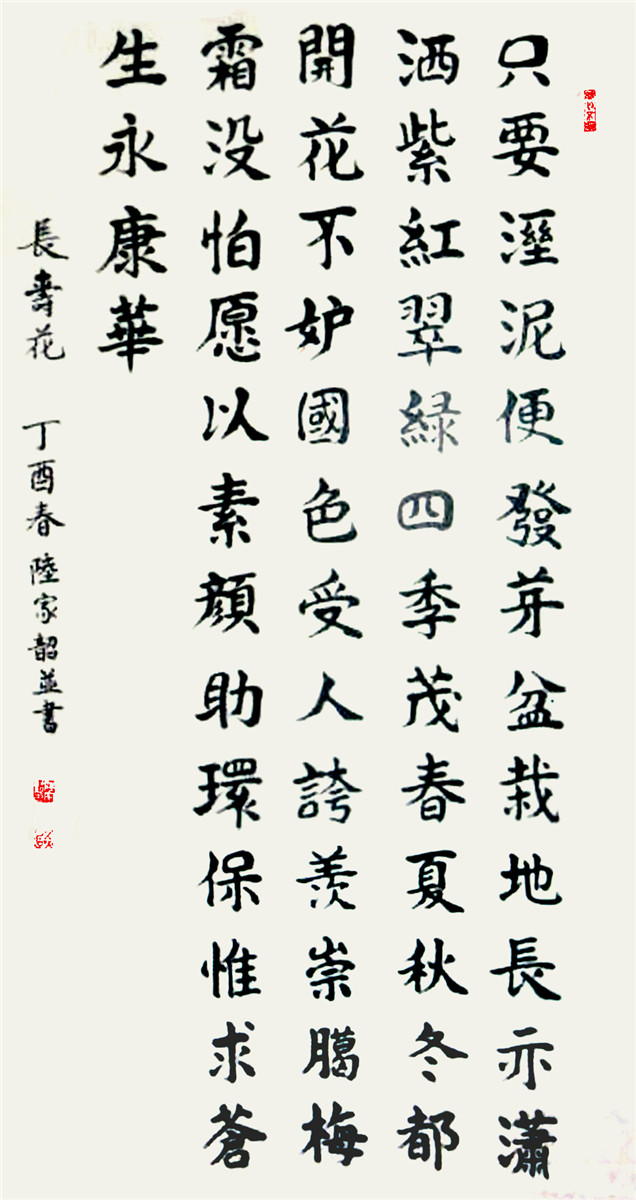 只要溼泥便發芽盆栽地長亦瀟
洒紫紅翠緑四季茂春夏秋冬都
開花不妒國色受人誇羨崇臈梅
霜没怕愿以素顔助環保惟求蒼
生永康華
長壽花 丁酉春陸家韶並書